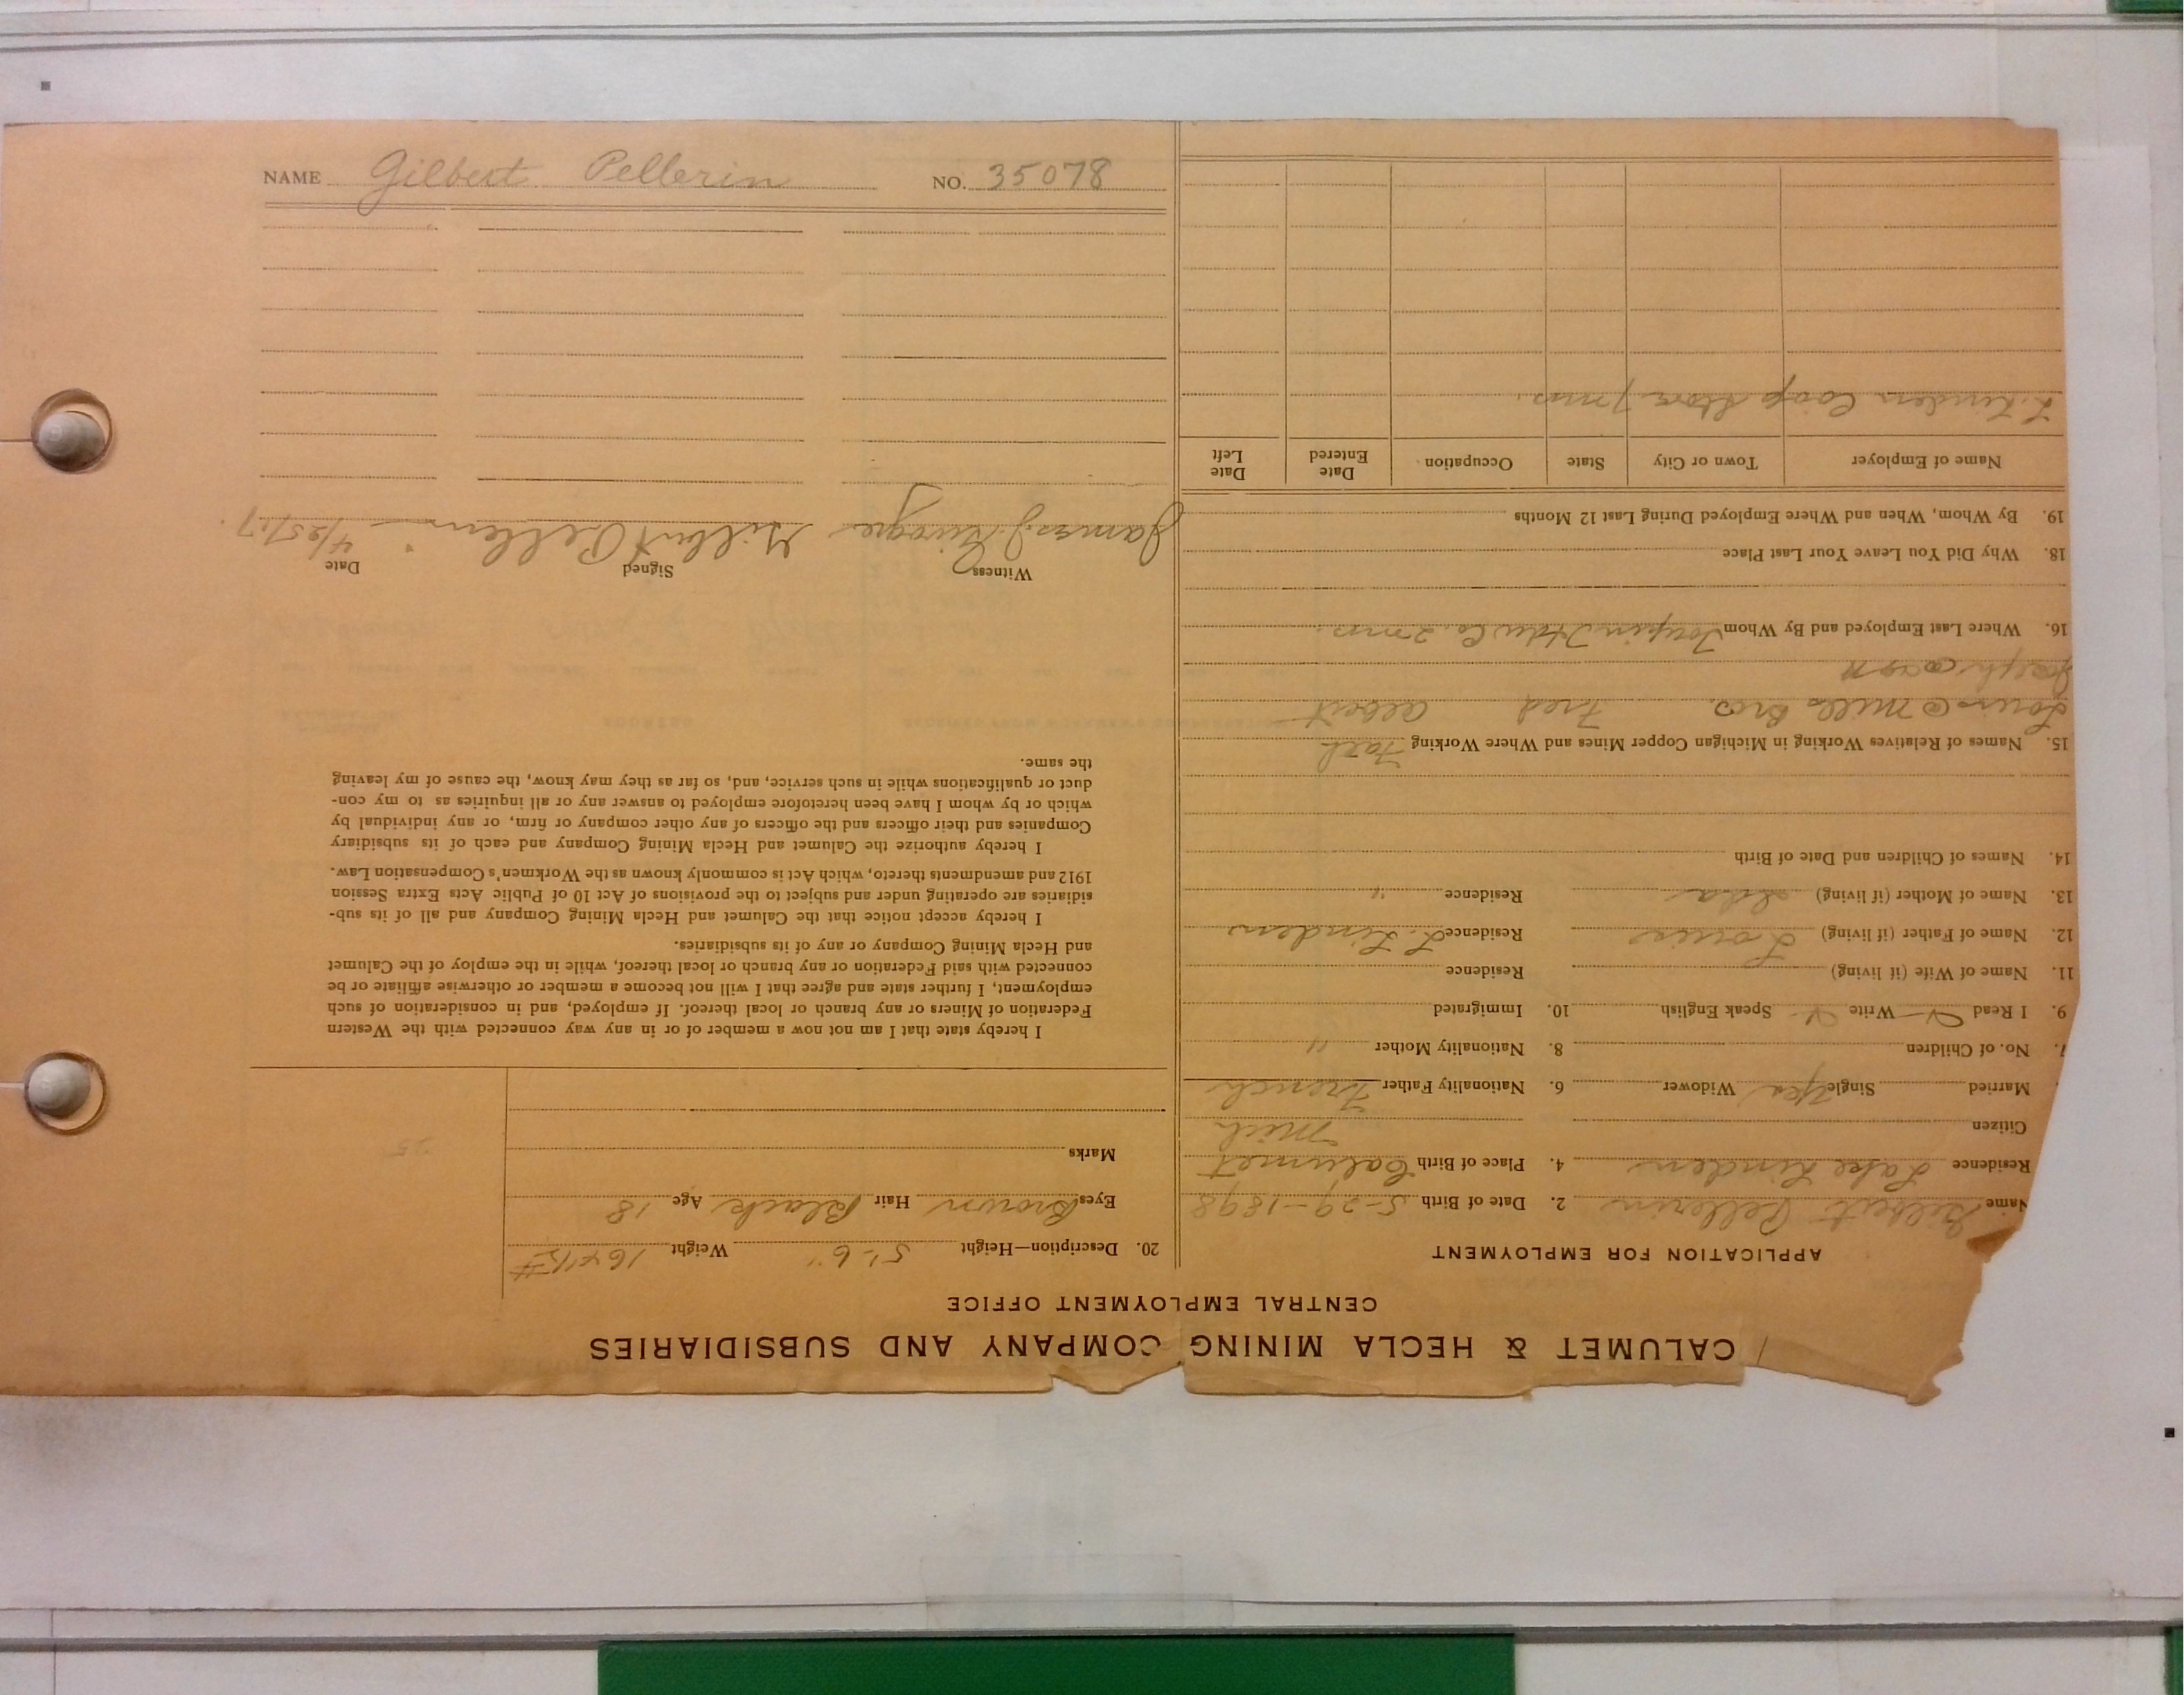 NAME Gilbert Pellerin NO. 35078
CALUMET & HECLA MINING COMPANY AND SUBSIDIARIES
CENTRAL EMPLOYMENT OFFICE
APPLICATION FOR EMPLOYMENT
Name Gilbert Pellerin 2. Date of Birth 5-29-1898
Residence Lake Linden 4. Place of Birth Calumet
Mich
Citizen
Married Single Yes Widower 6. Nationality Father French
7. No. of Children 8. Nationality Mother "
9. I Read Write Speak English 10. Immigrated
11. Name of Wife (if living) Residence
12. Name of Father (if living) Louis Residence L. Linden
13. Name of Mother (if living) Residence "
14. Names of Children and Date of Birth
15. Names of Relatives Working in Michigan Copper Mines and Where Working Fath
Louis @ Mills Bros. Fred Albert
Joseph @
16. Where Last Employed and By Whom Co. 2 mos.
18. Why Did You Leave Your Last Place
19. By Whom, When and Where Employed During Last 12 Months
Name of Employer Town or City State Occupation Date Entered Date Left
L. Linden Coop Store 7 mos.
20. Description—Height 5'-6" Weight
Eyes Brown Hair Black Age 18
Marks
25
I hereby state that I am not now a member of or in any way connected with the Western
Federation of Miners or any branch or local thereof. If employed, and in consideration of such
employment, I further state and agree that I will not become a member or otherwise affiliate or be
connected with said Federation or any branch or local thereof, while in the employ of the Calumet
and Hecla Mining Company or any of its subsidiaries.
I hereby accept notice that the Calumet and Hecla Mining Company and all of its sub-
sidiaries are operating under and subject to the provisions of Act 10 of Public Acts Extra Session
1912 and amendments thereto, which Act is commonly known as the Workmen's Compensation Law.
I hereby authorize the Calumet and Hecla Mining Company and each of its subsidiary
Companies and their officers and the officers of any other company or firm, or any individual by
which or by whom I have been heretofore employed to answer any or all inquiries as to my con-
duct or qualifications while in such service, and, so far as they may know, the cause of my leaving
the same.
Witness Signed Date
James J. Gilbert Pellerin 4/25/17